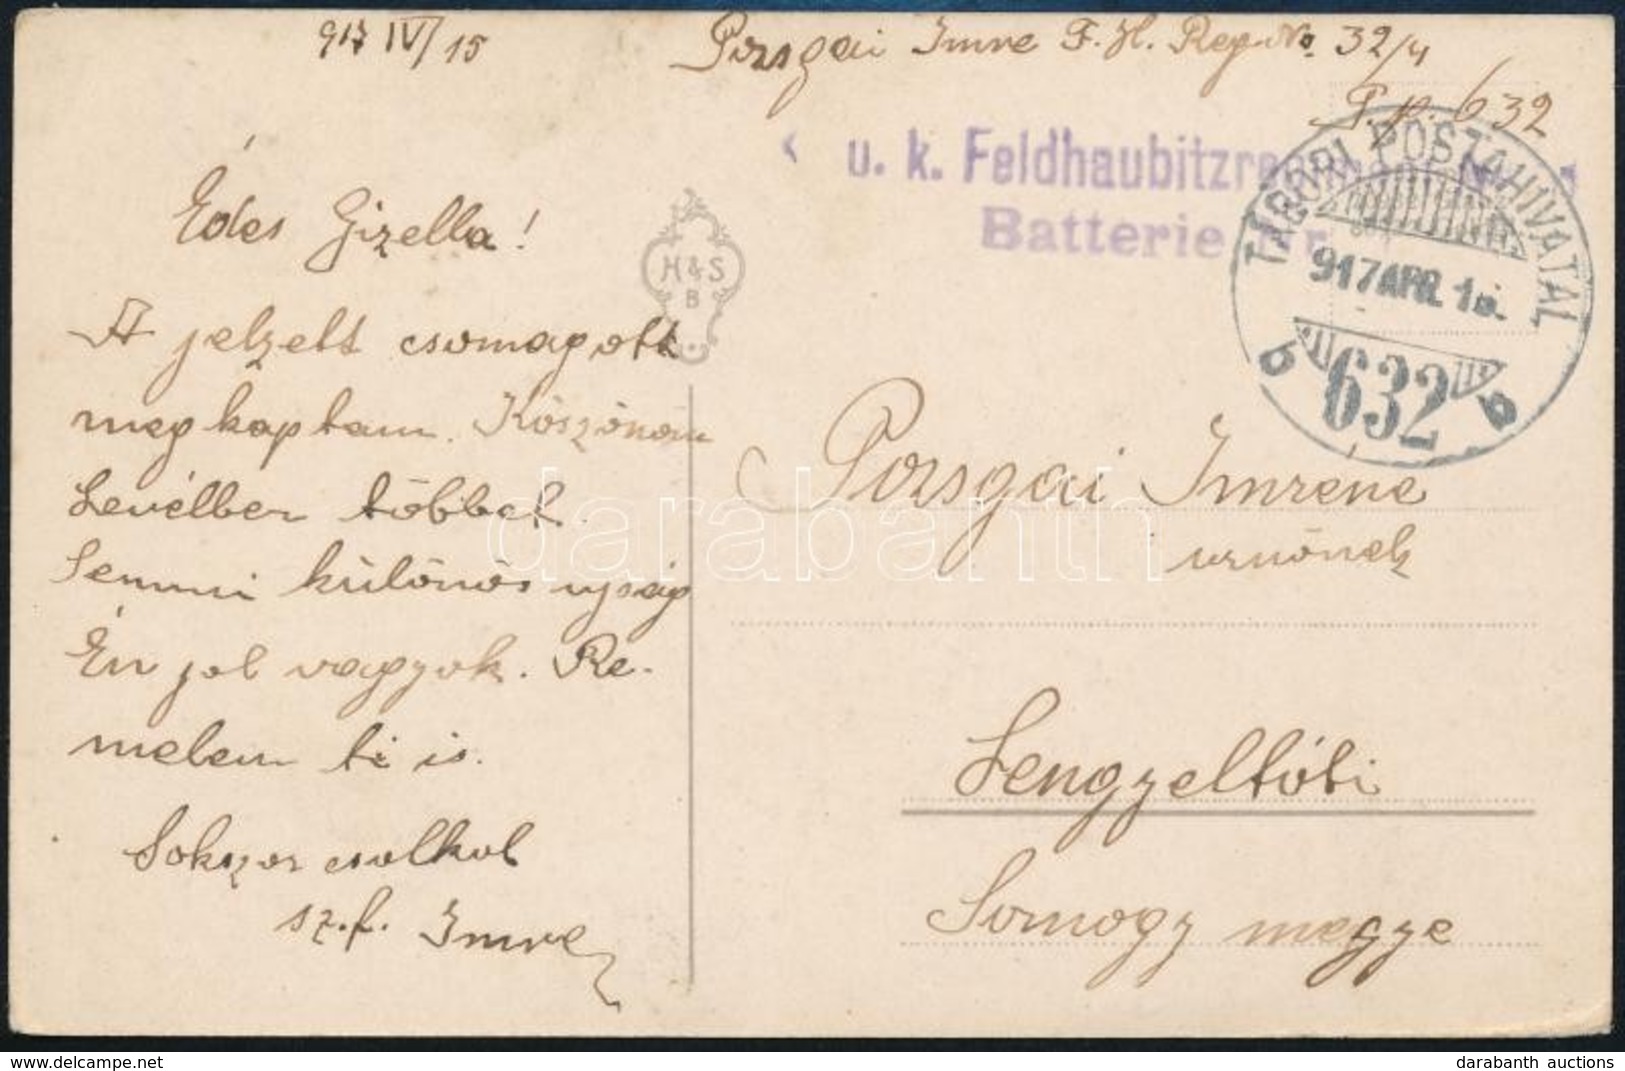 917 IV/15
Pozsgai Imre F. H. Reg No. 32/4
T. p. 632
u. k. Feldhaubitzregim
Batterie Nr
TÁBORI POSTAHIVATAL
917 APR. 1
b 632 b
H & S
B
Édes Gizella!
A jelzett csomagott
megkaptam. Köszönöm
Levélben többet.
Semmi különös ujság
Én jol vagyok. Re-
melem ti is.
Sokszor csolkol
sz. f. Imre
Pozsgai Imréne
urnőnek
Lengyeltóti
Somogy megye
darabanth
darabanth auctions